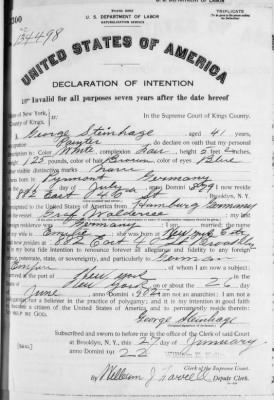 U. S. DEPARTMENT OF LABOR
TRIPLICATE
U. S. DEPARTMENT OF LABOR
NATURALIZATION SERVICE
No. 134498
UNITED STATES OF AMERICA
DECLARATION OF INTENTION
Invalid for all purposes seven years after the date hereof
State of New York,
County of Kings.
ss:
In the Supreme Court of Kings County.
I, George Steinhage, aged 41 years,
occupation Painter, do declare on oath that my personal
description is: Color White, complexion Fair, height 5 feet inches,
weight 125 pounds, color of hair Brown, color of eyes Blue
other visible distinctive marks none
I was born in Pyrmont Germany
day of July, anno Domini; I now reside
at 882 East, Brooklyn, N.Y.
I emigrated to the United States of America from Hamburg Germany
on the vessel Graf Waldersee; my last
foreign residence was Germany
I am married; the name of my wife is
It is my bona fide intention to renounce forever all allegiance and fidelity to any foreign
prince, potentate, state, or sovereignty, and particularly to German
Empire, of whom I am now a subject;
I arrived at the port of New York, in the
State of New York on or about the 26 day
of June, anno Domini; I am not an anarchist; I am not a
polygamist nor a believer in the practice of polygamy; and it is my intention in good faith
to become a citizen of the United States of America and to permanently reside therein:
SO HELP ME GOD.
George Steinhage
Subscribed and sworn to before me in the office of the Clerk of said Court
at Brooklyn, N.Y., this 27 day of January
anno Domini 1922
[SEAL]
Clerk of the Supreme Court.
By William J., Deputy Clerk.